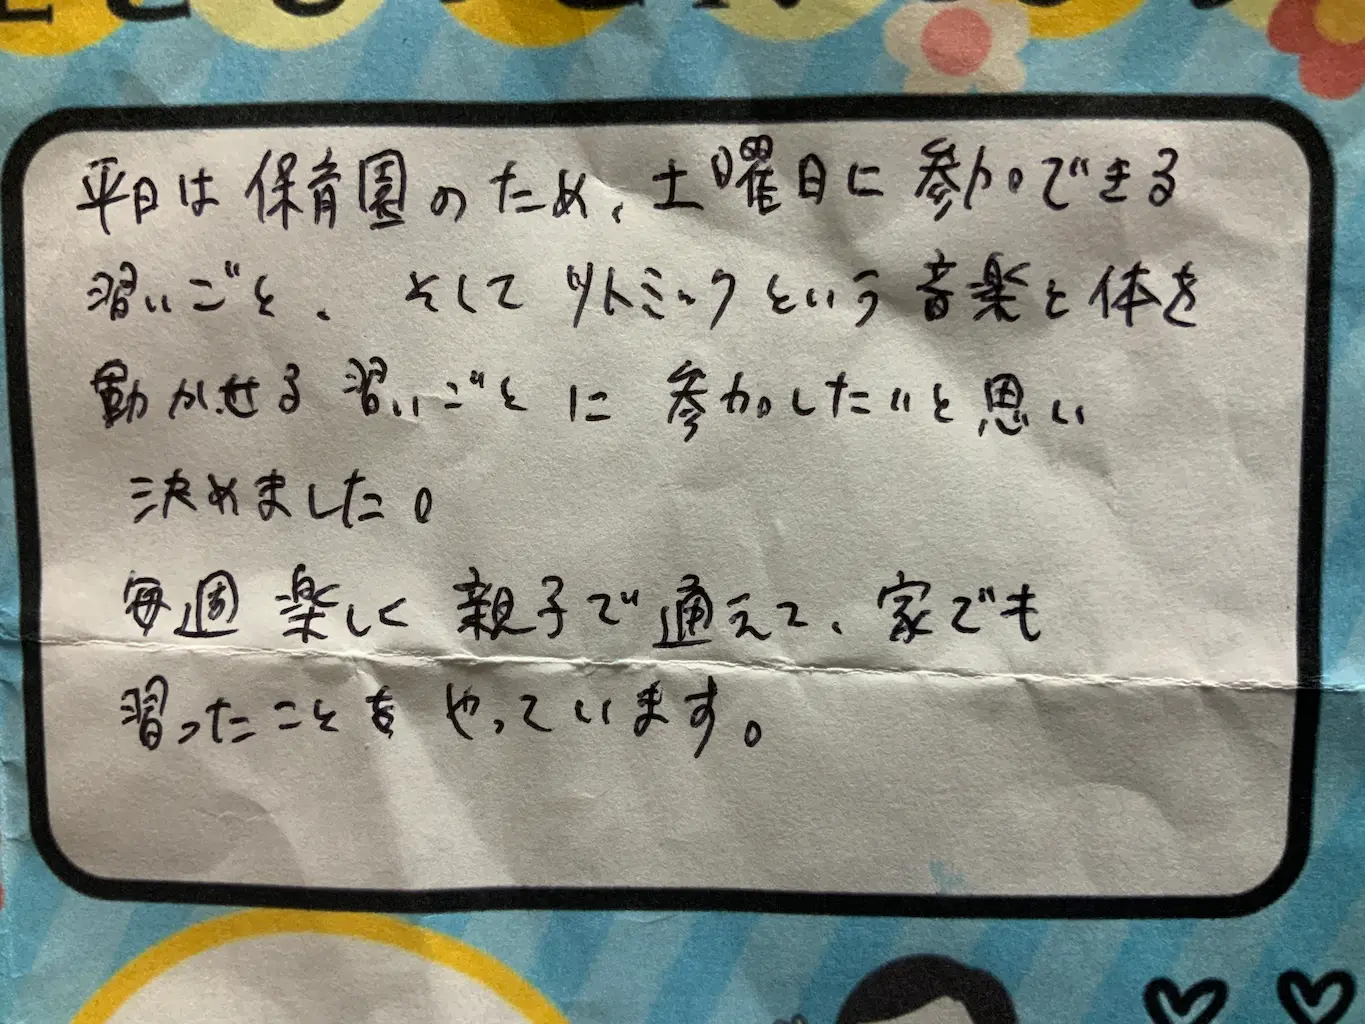 平日は保育園のため、土曜日に参加できる
習いごと、そしてリトミックという音楽と体を
動かせる習いごとに参加したいと思い
決めました。
毎週楽しく親子で通えて、家でも
習ったことをやっています。